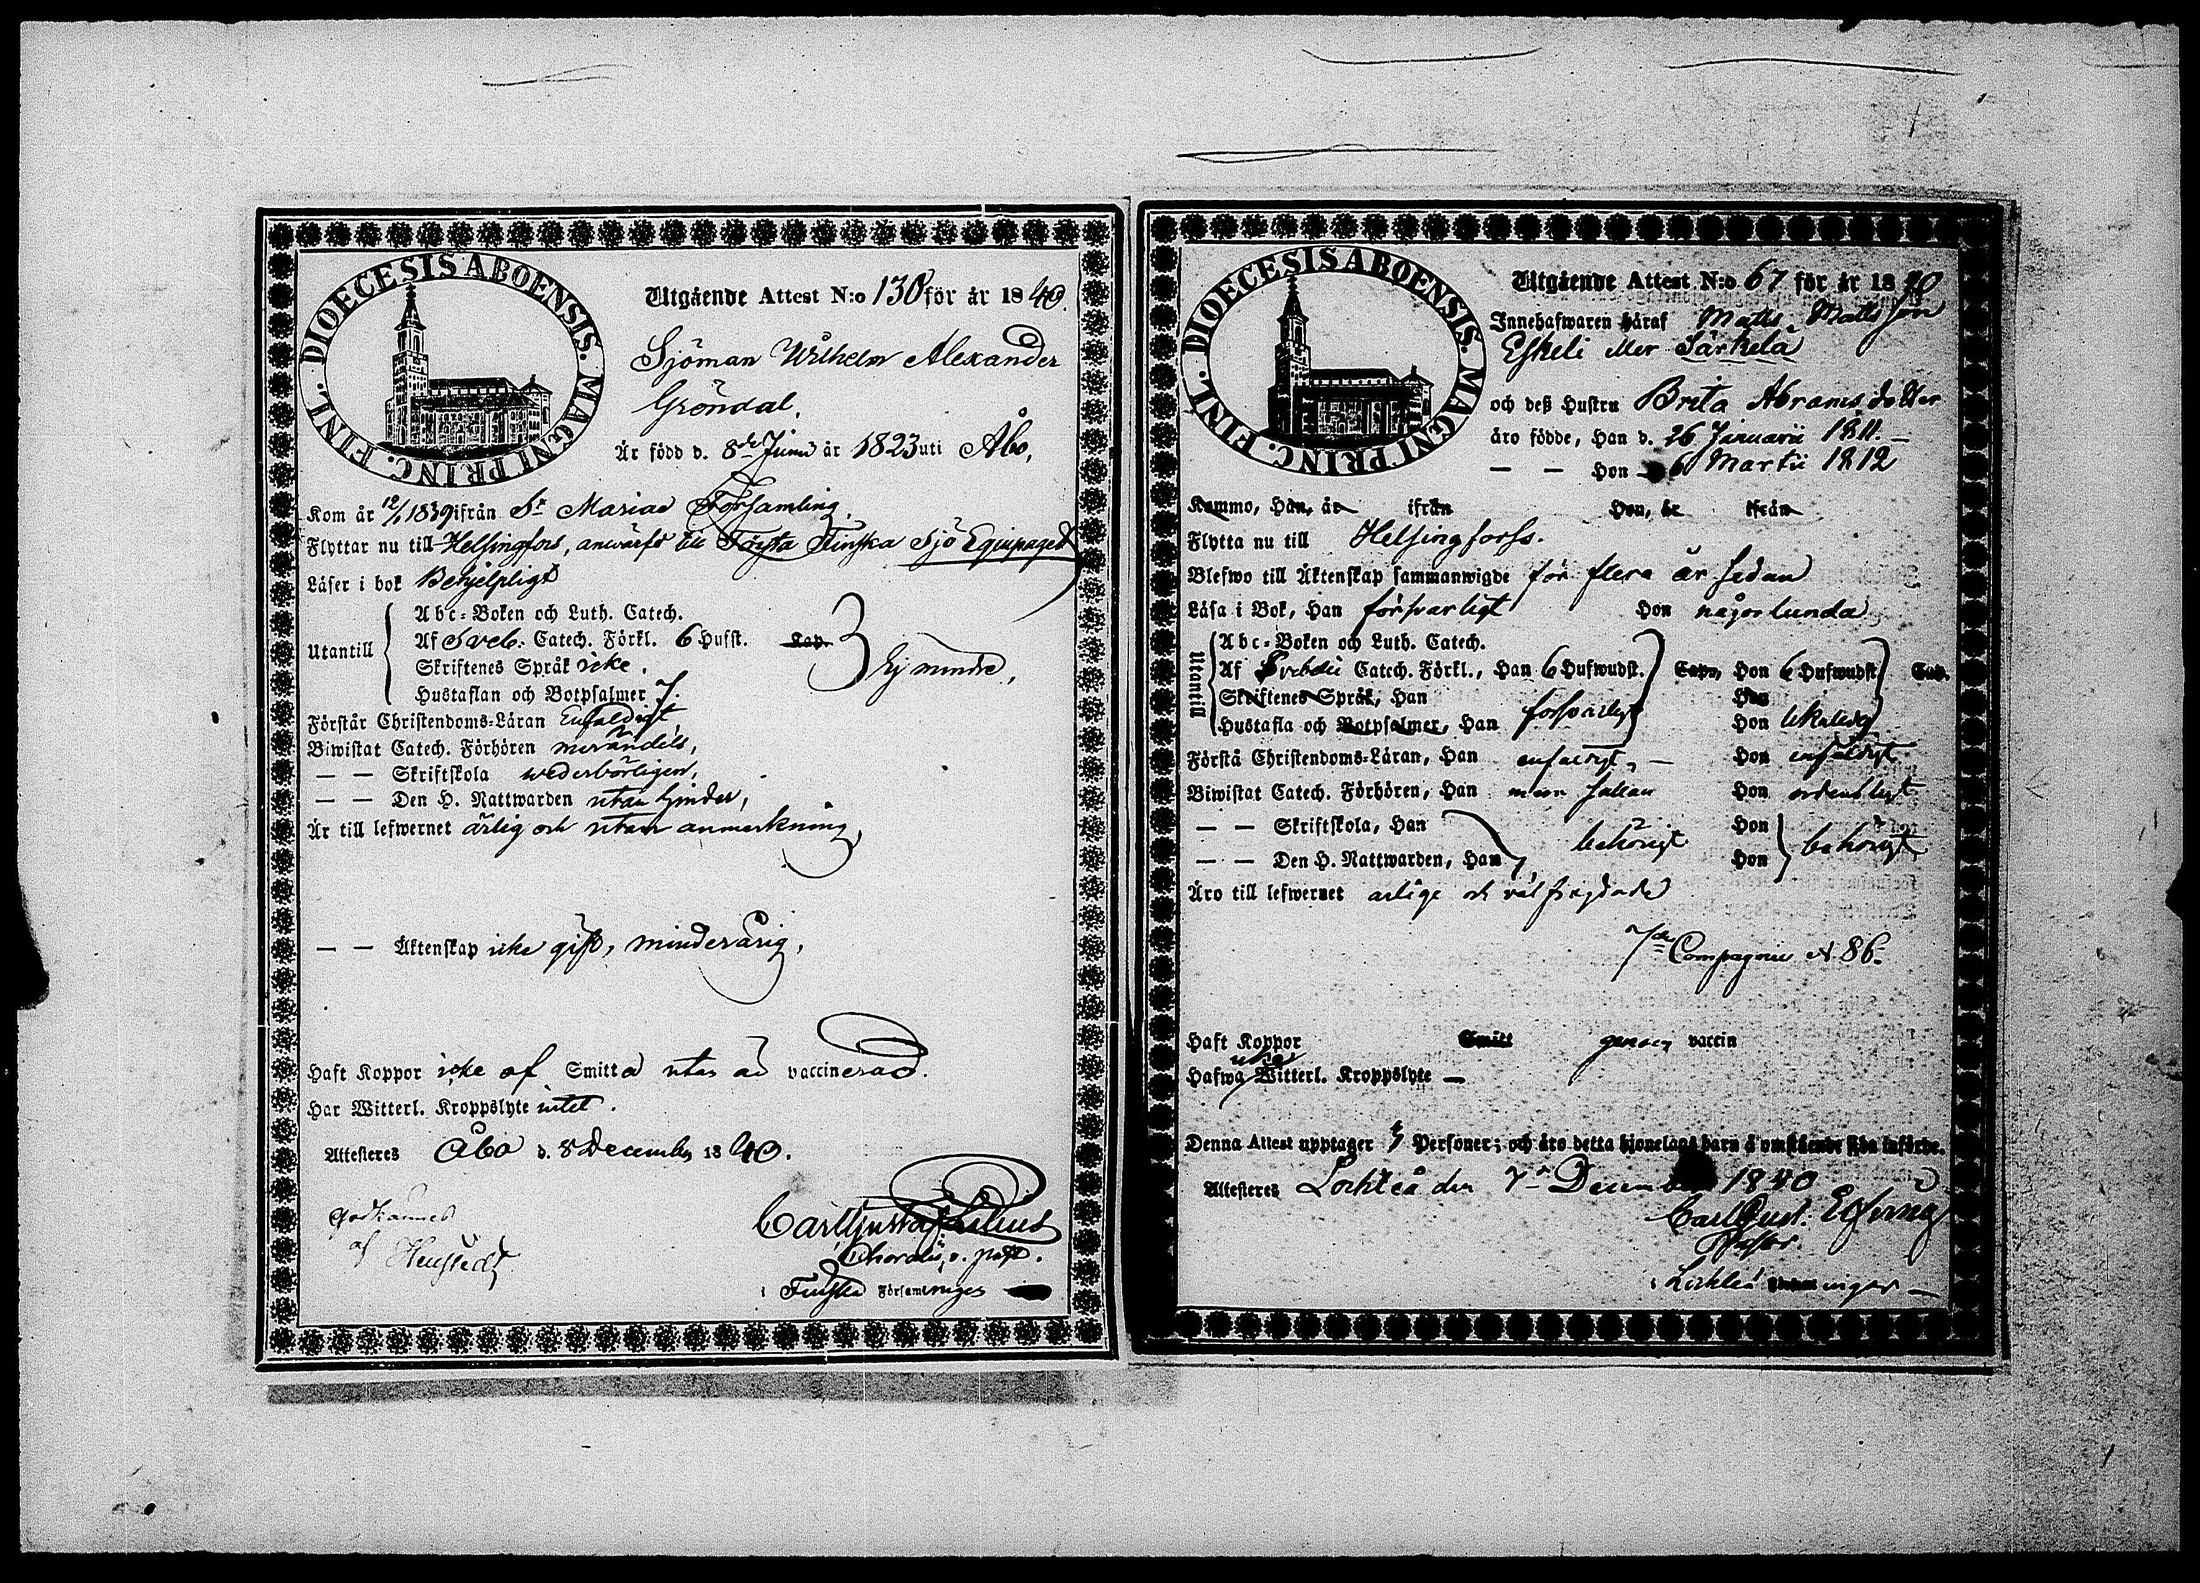 DIOECESIS ABOENSIS. MAGNI PRINC. FINL.
Utgående Attest N:o 130 för år 1840.
Sjöman Wilhelm Alexander
Gröndal,
Är född d. 8de Junii år 1823 uti Åbo,
Kom år 12/1 1839 ifrån St Mariae Församling,
Flyttar nu till Helsingfors, anwärfd till Första Finska Sjö Equipaget
Läser i bok Behjelpligt
Utantill
Abc-Boken och Luth. Catech.
Af Sveb. Catech. Förkl. 6 Hufst. Cap.
Skriftenes Språk icke.
Ej mindre,
Hustaflan och Botpsalmer 7.
Förstår Christendoms-Läran Enfaldigt,
Biwistat Catech. Förhören merändels,
— — Skriftskola wederbörligen,
— — Den H. Nattwarden utan hinder,
Är till lefwernet ärlig och utan anmerkning,
— — Äktenskap icke gift, minderårig,
Haft Koppor icke af Smitta utan är vaccinerad.
Har Witterl. Kroppslyte intet.
Attesteres Åbo d. 8 December 1840.
Godkännes
af
Carl Gustaf
v. past.
i Finska Församlinges
DIOECESIS ABOENSIS. MAGNI PRINC. FINL.
Utgående Attest N:o 67 för år 1840
Innehafwaren häraf Matts Matts son
Eskeli eller Särkelä
och deß Hustru Brita Abramsdotter
äro födde, Han d. 26 Januarii 1811.—
— — Hon — 6 Martii 1812
Kommo, Han, år ifrån Hon, år ifrån
Flytta nu till Helsingfors.
Blefwo till Äktenskap sammanwigde för flera år sedan
Läsa i Bok, Han försvarligt Hon någorlunda
Utantill
Abc-Boken och Luth. Catech.
Af Svebelii Catech. Förkl., Han 6 Hufwudst. Cap., Hon 6 Hufwudst. Cap.
Skriftenes Språk, Han Hon
Hustafla och Botpsalmer, Han försvarligt Hon likaledes
Förstå Christendoms-Läran, Han enfaldigt, — Hon enfaldigt
Biwistat Catech. Förhören, Han men sällan Hon ordentligt
— — Skriftskola, Han Hon
behörigt behörigt
— — Den H. Nattwarden, Han Hon
Äro till lefwernet ärlige och välfrejdade
7de Compagnie N 86.
Haft Koppor Smitt genom vaccin
Hafwa icke Witterl. Kroppslyte —
Denna Attest upptager Personer; och äro detta hjonelags barn å omstående sida införde.
Attesteres Lochteå den 7 December 1840
Carl Gust.
Pastor.
i Lochteå ningar —